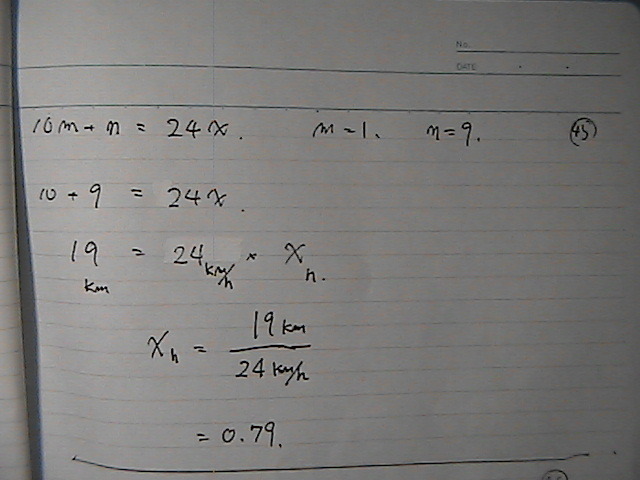 No.
DATE
10m+n = 24x. m=1. n=9. 45
10+9 = 24x.
19 km = 24 km/h × x h.
x h = 19 km / 24 km/h
= 0.79.